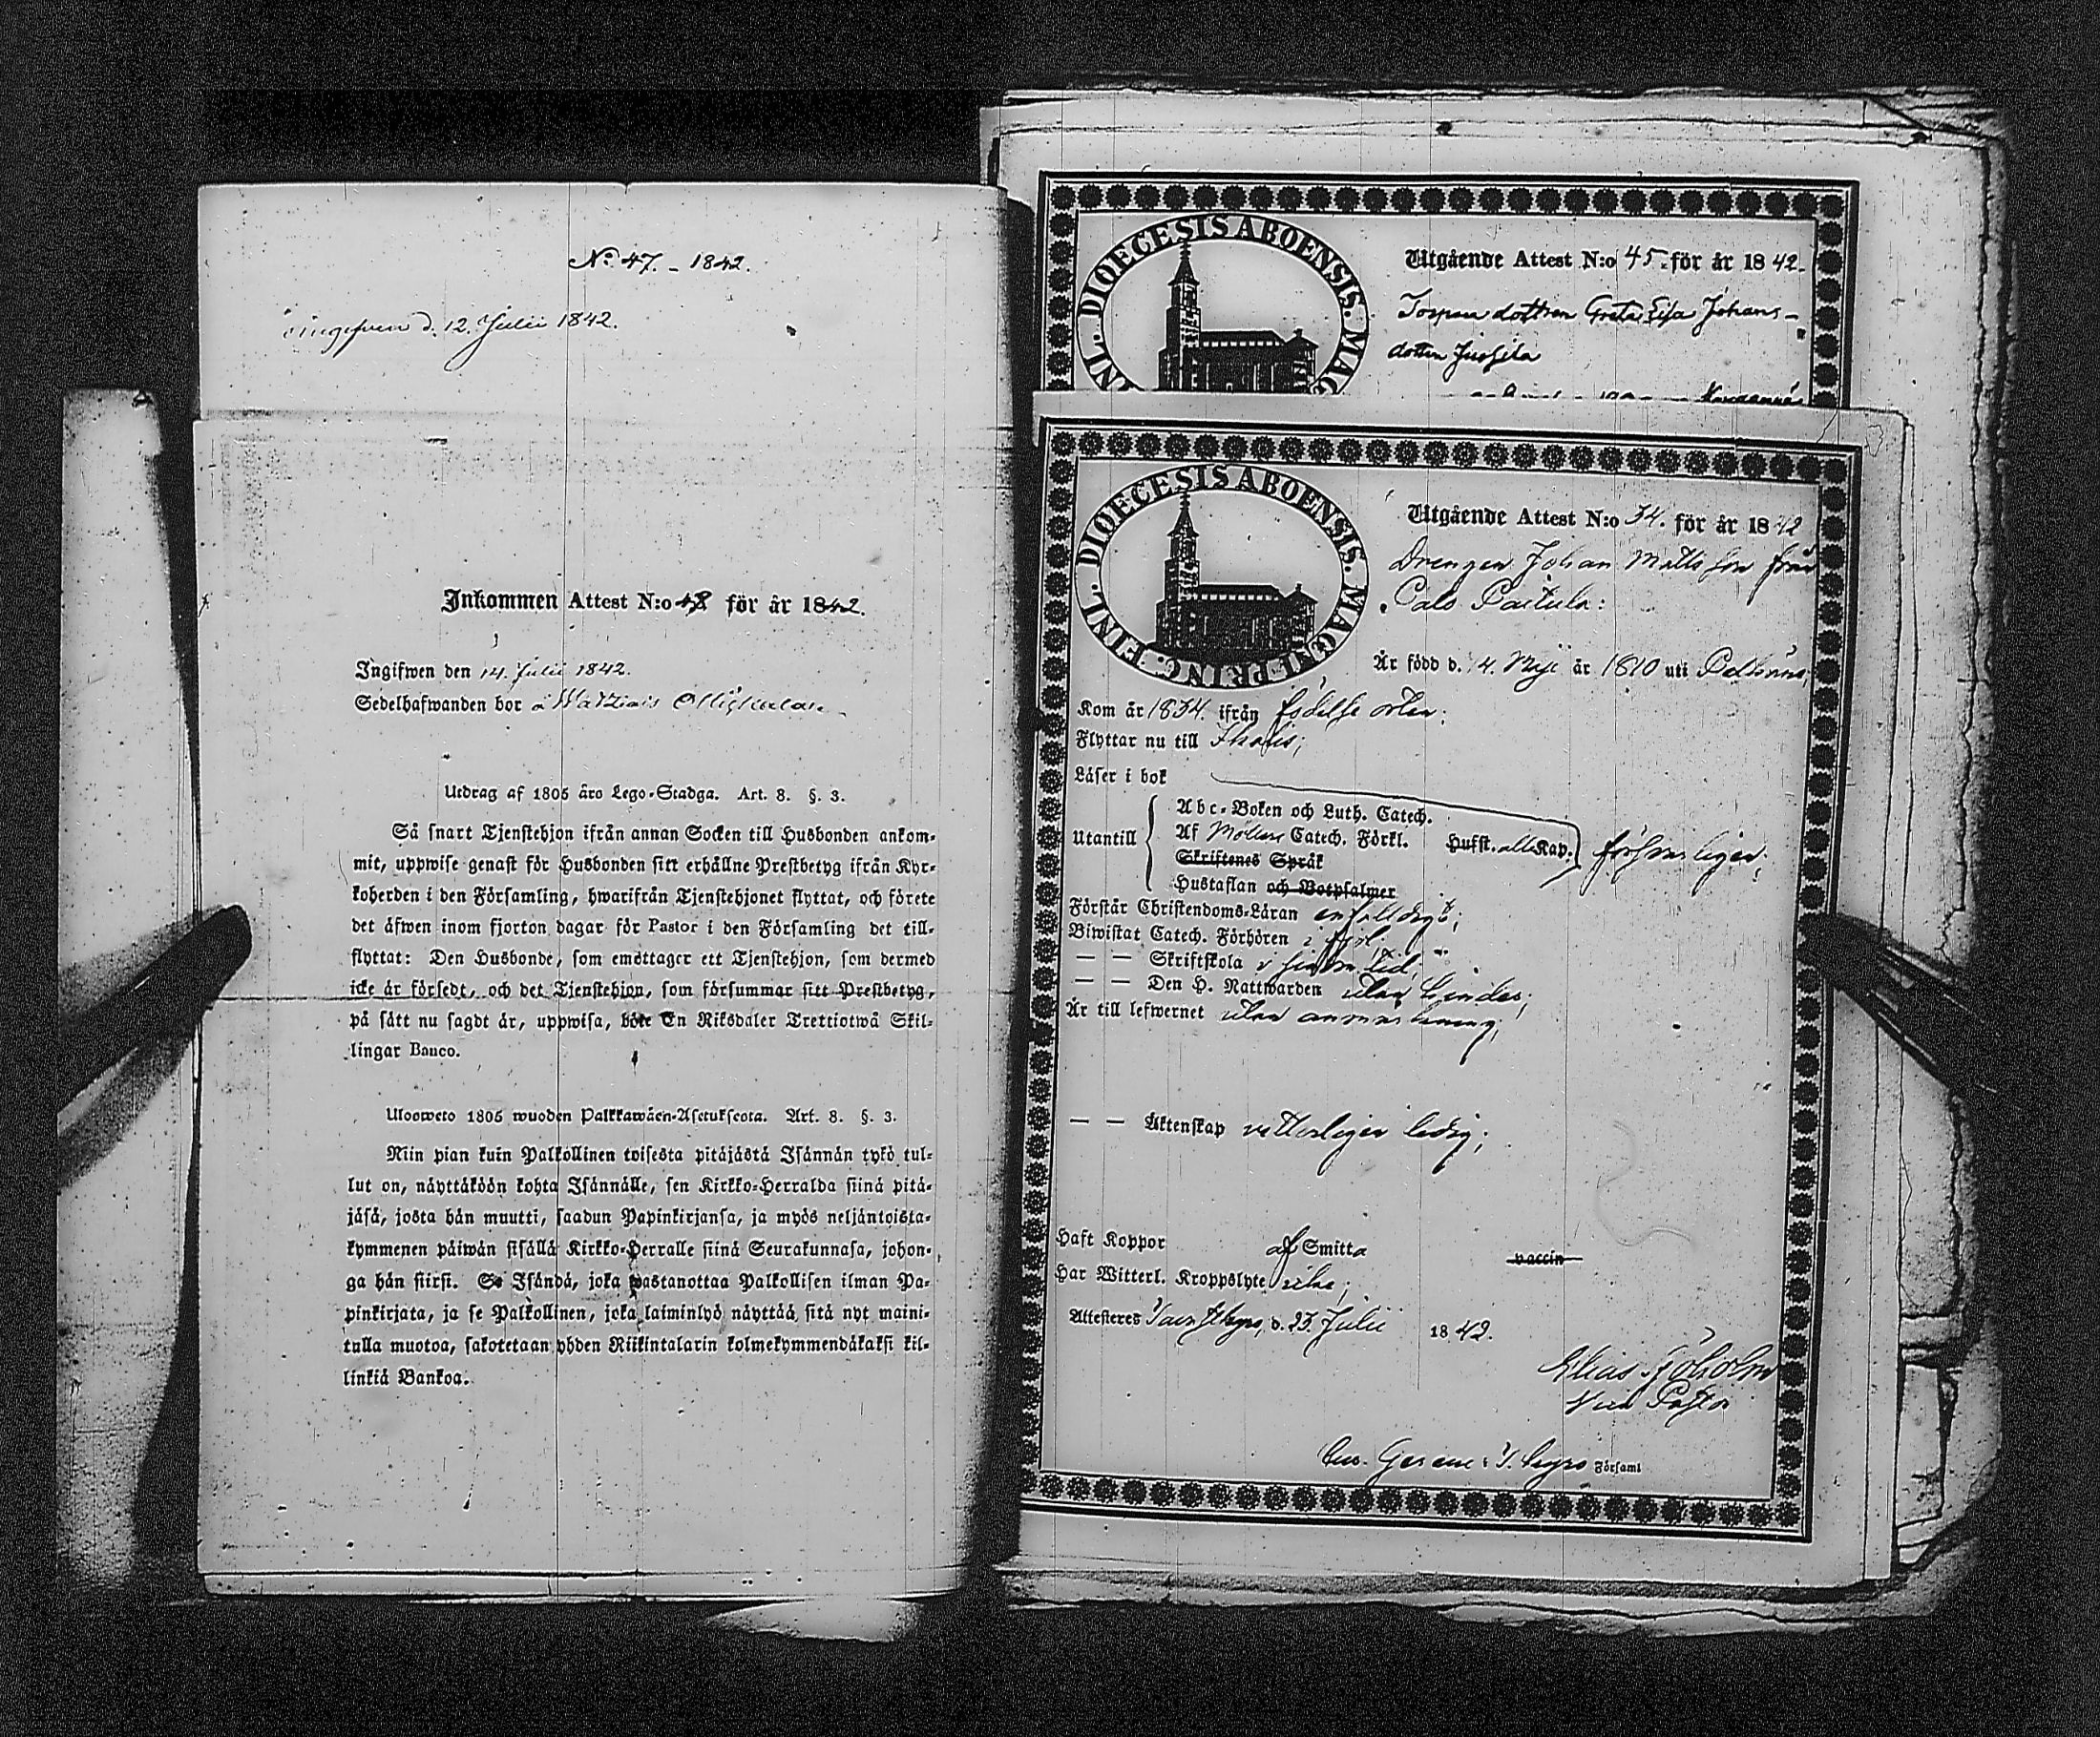 No 47. - 1842.
ingifven d. 12. Julii 1842.
Inkommen Attest N:o 48 för år 1842.
Ingifwen den 14. Julii 1842.
Sedelhafwanden bor å
Utdrag af 1805 åro Lego-Stadga. Art. 8. §. 3.
Så snart Tjenstehjon ifrån annan Socken till Husbonden ankom-
mit, uppwise genast för Husbonden sitt erhållne Prestbetyg ifrån Kyr-
koherden i den Församling, hwarifrån Tjenstehjonet flyttat, och förete
det äfwen inom fjorton dagar för Pastor i den Församling det till-
flyttat: Den Husbonde, som emottager ett Tjenstehjon, som dermed
icke är försedt, och det Tjenstehjon, som försummar sitt Prestbetyg,
på sätt nu sagdt är, uppwisa, böte En Riksdaler Trettiotwå Skil-
lingar Banco.
Ulosweto 1805 wuoden Palkkawäen-Asetuksesta. Art. 8. §. 3.
Niin pian kuin Palkollinen toisesta pitäjästä Isännän tykö tul-
lut on, näyttäköön kohta Isännälle, sen Kirkko-Herralda siinä pitä-
jäsä, josta hän muutti, saadun Papinkirjansa, ja myös neljäntoista-
kymmenen päiwän sisällä Kirkko-Herralle siinä Seurakunnasa, johon-
ga hän siirsi. Se Isändä, joka wastanottaa Palkollisen ilman Pa-
pinkirjata, ja se Palkollinen, joka laiminlyö näyttää, sitä nyt maini-
tulla muotoa, sakotetaan yhden Riikintalarin kolmekymmendäkaksi kil-
linkiä Bankoa.
DIOECESIS ABOENSIS. MAG
INL.
Utgående Attest N:o 45. för år 1842.
dottren Greta Lisa Johans-
dotter Jussila
DIOECESIS ABOENSIS. MAGNI PRINC. FINL.
Utgående Attest N:o 34. för år 1842
Drengen Johan Matts son från
Palo Paitula:
Är född d. 4. Maji år 1810 uti
Kom år 1834. ifrån födelse orten;
Flyttar nu till Ikalis;
Läser i bok
Utantill
Abc-Boken och Luth. Catech.
Af Möllers Catech. Förkl. Hufst. alla Kap.
försvarligen;
Skriftenes Språk
Hustaflan och Botpsalmer
Förstår Christendoms-Läran enfaldigt;
Biwistat Catech. Förhören i fjol;
— — Skriftskola i sinom tid,
— — Den H. Nattwarden utan hinder;
Är till lefwernet utan anmärkning;
— — Äktenskap vitterligen ledig;
Haft Koppor af Smitta vaccin
Har Witterl. Kroppslyte icke;
Attesteres Tavastkyro, d. 23. Julii 1842.
Elias Sjöholm
Vice Pastor
Församl